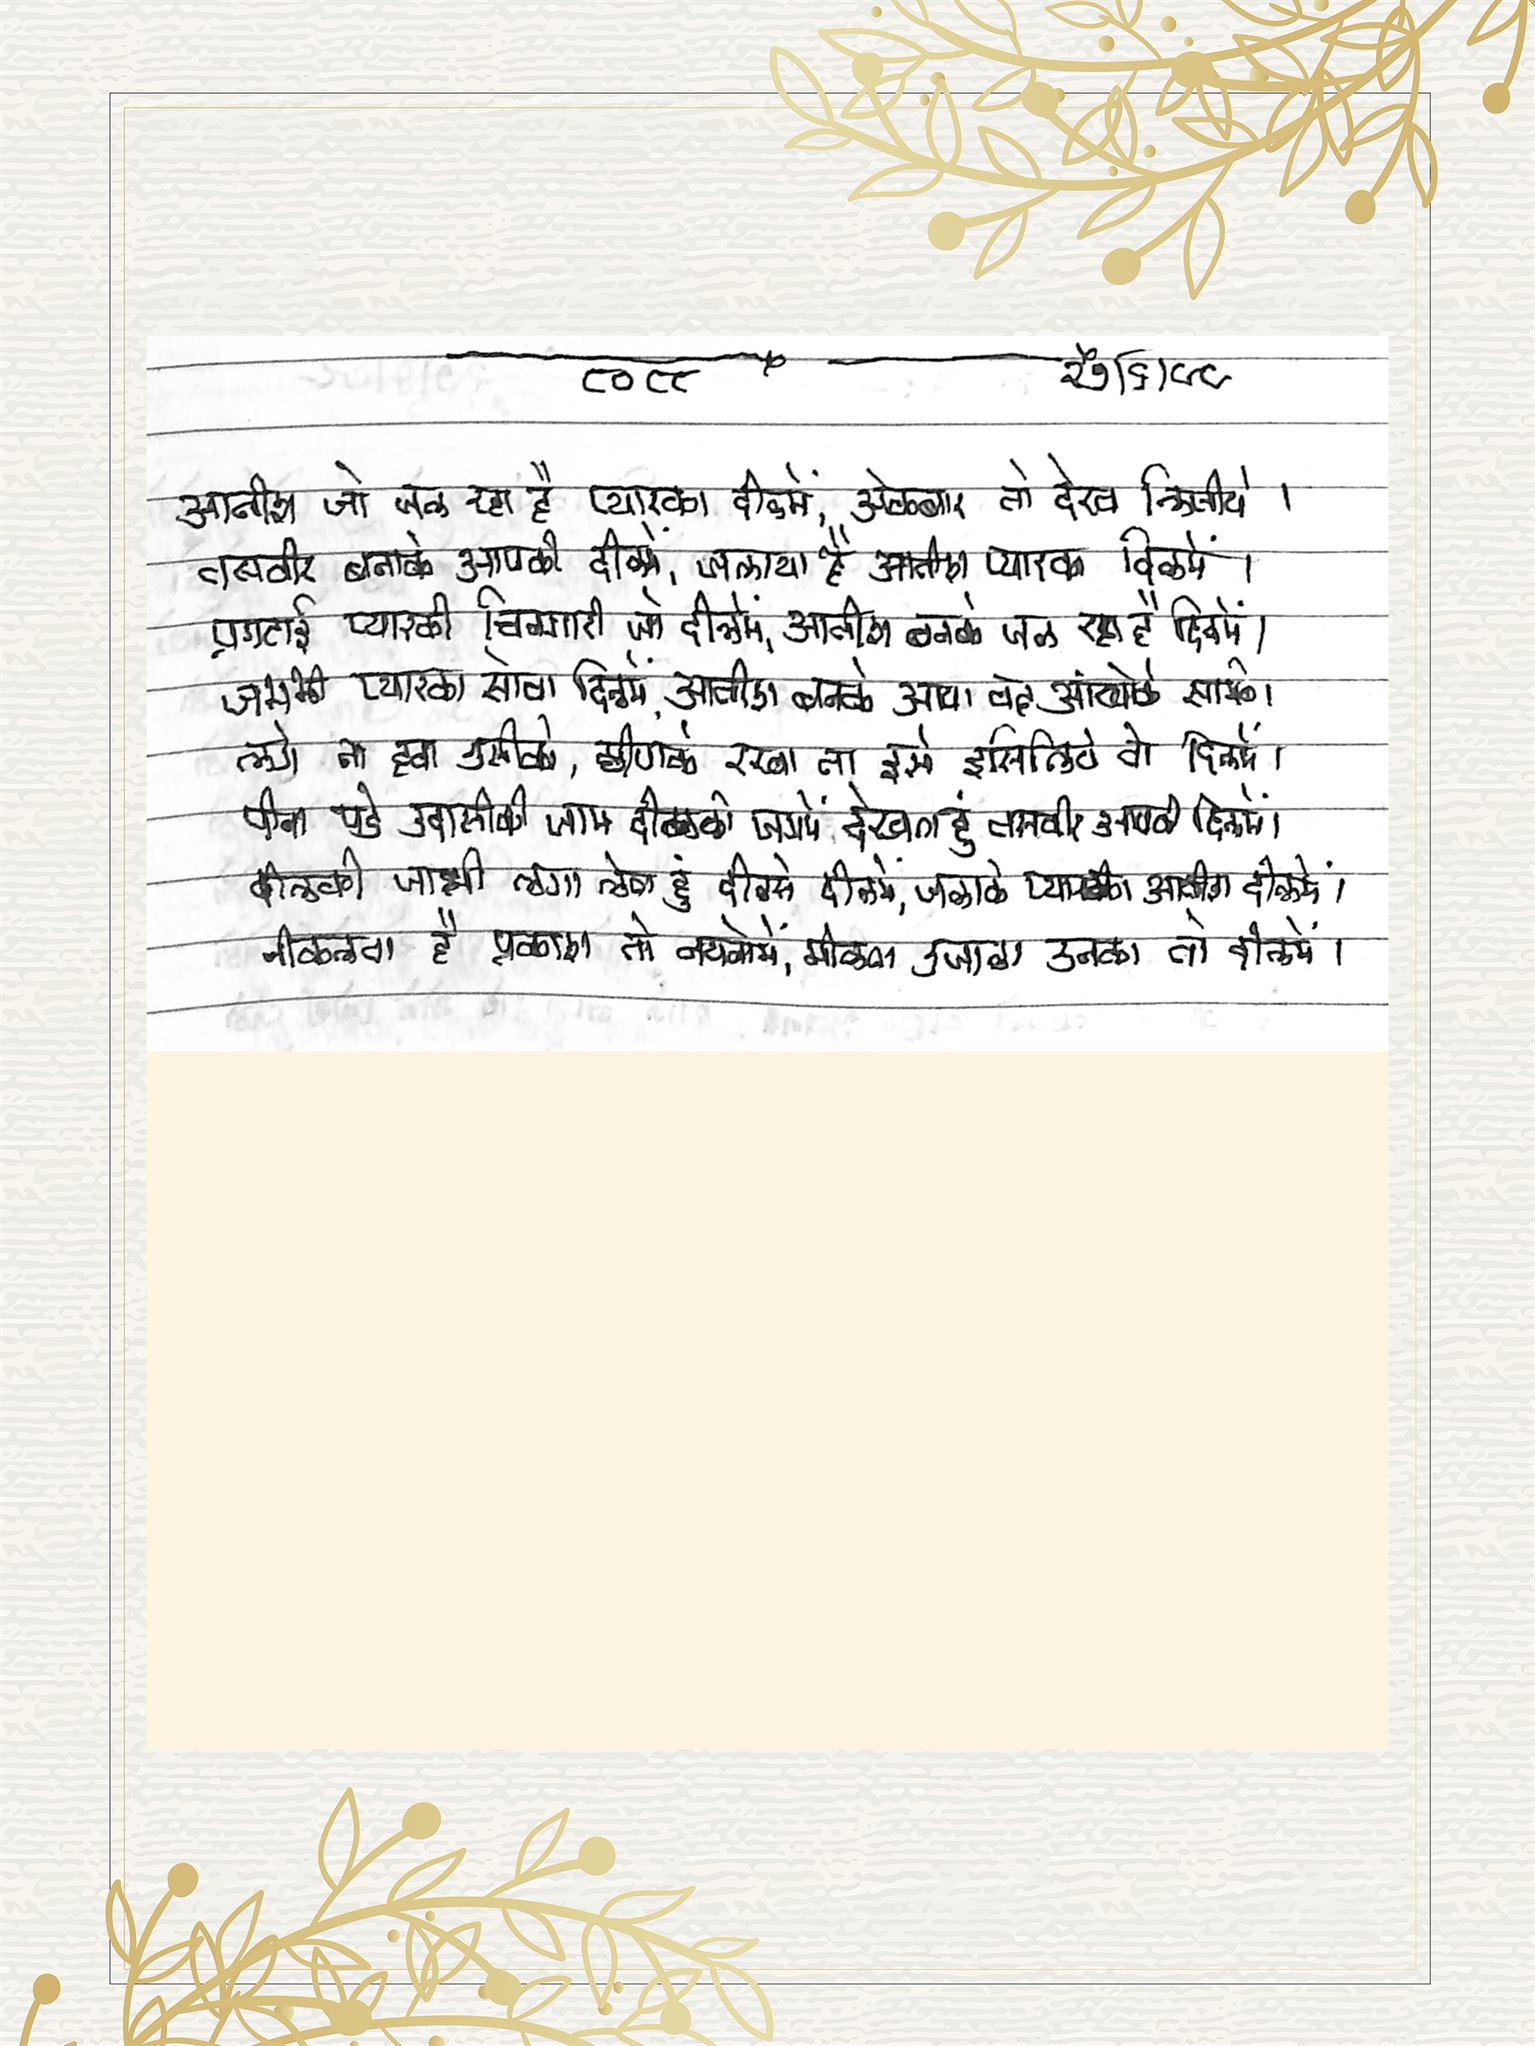 ८०८८ २७/६/८८
आतीश जो जल रहा है प्यारका दीलमें, अेकबार तो देख लिजीये ।
तसवीर बनाके आपकी दीलमें, जलाया है आतीश प्यारका दिलमें ।
प्रगटाई प्यारकी चिनगारी जो दीलमें, आतीश बनके जल रहा है दिलमें ।
जभभी प्यारका सोचा दिलमें, आतीश बनके आया वह आंखोके सामने ।
लगे ना हवा उसीको, छीपाके रखा था इसे इसिलिये तो दिलमें ।
पीना पडे उदासीकी जाम दीलको जगमें देखता हुं तसवीर आपकी दिलमें ।
दीलकी लगा लेता हुं दीलसे दीलमें, जलाके प्यारका आतीश दीलमें ।
नीकलता है प्रकाश तो नयनोमें, मीलता उजाला उनका तो दीलमें ।